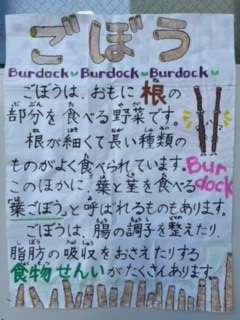 ごぼう
Burdock Burdock Burdock
ごぼうは、おもに根の
部分を食べる野菜です。
根が細くて長い種類の
ものがよく食べられています。
Burdock
このほかに、葉と茎を食べる
「葉ごぼう」と呼ばれるものもあります。
ごぼうは、腸の調子を整えたり、
脂肪の吸収をおさえたりする
食物せんいがたくさんあります。